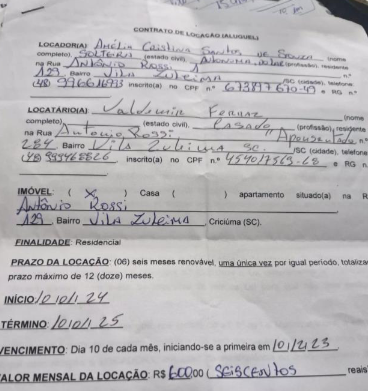 CONTRATO DE LOCAÇÃO (ALUGUEL)
LOCADOR(A) Amélia Cristina Santos de Souza (nome
completo), SOLTEIRA (estado civil), (profissão), residente
na Rua Antônio Rossi, nº
129 Bairro Vila Zuleima /SC (cidade), telefone
(48) inscrito(a) no CPF n.º e RG n.
LOCATÁRIO(A) Valdemir Ferraz (nome
completo), (estado civil), Casado (profissão), residente
na Rua Antonio Rossi "Aposentado" n.º
284 Bairro Vila Zuleima SC. /SC (cidade), telefone
(48) inscrito(a) no CPF n.º e RG n.
IMÓVEL: ( X ) Casa ( ) apartamento situado(a) na R
Antônio Rossi
129 Bairro Vila Zuleima, Criciúma (SC).
FINALIDADE: Residencial
PRAZO DA LOCAÇÃO: (06) seis meses renovável, uma única vez por igual período, totaliza
prazo máximo de 12 (doze) meses.
INÍCIO 10/01/24
TÉRMINO: 10/01/25
VENCIMENTO: Dia 10 de cada mês, iniciando-se a primeira em
ALOR MENSAL DA LOCAÇÃO: R$ 600,00 (SEISCENTOS reais